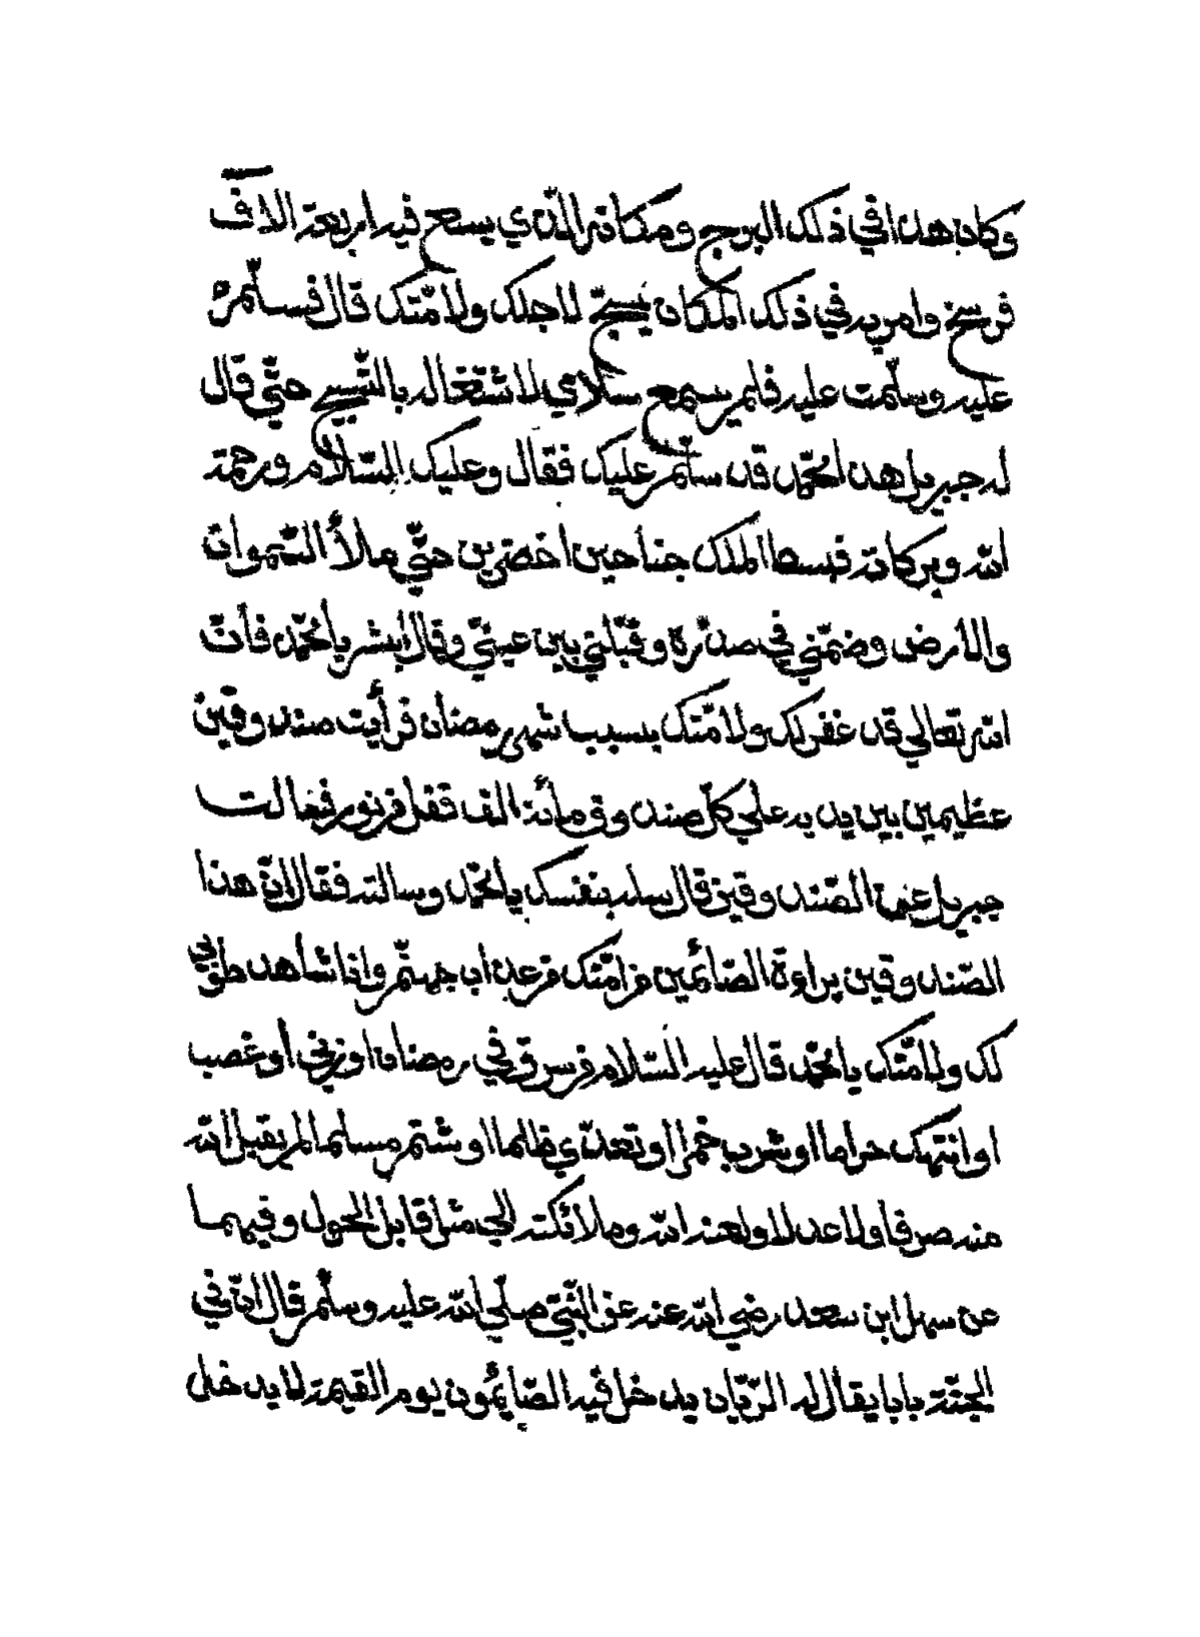 وكان هذا في ذلك البرج ومكانه الذي يسبح فيه اربعة الاف
فرسخ وامر به في ذلك المكان يسبح لاجلك ولامّتك قال فسلّم
عليه وسلّمت عليه فلم يسمع سلامي لاشتغاله بالتّسبيح حتّى قال
له جبريل هذا محمّد قد سلّم عليك فقال وعليك السّلام ورحمة
الله وبركاته فبسط الملك جناحين اخضرين حتّى ملأ السّموات
والارض وضمّني في صدره وقبّلني بين عينيّ وقال أبشر يا محمّد فانّ
الله تعالى قد غفر لك ولامّتك بسبب شهر رمضان فرأيت صندوقين
عظيمين بين يديه على كلّ صندوق مأئة الف قفل من نور فسالت
جبريل عن الصّندوقين قال سله بنفسك يا محمّد وسالته فقال انّ هذا
الصّندوقين براءة الصّائمين من امّتك من عذاب جهنّم واذا شاهد طوبى
لك ولامّتك يا محمّد قال عليه السّلام من سرق في رمضان او زنى أو غصب
او انتهك حراما او شرب خمرا او تعدّي ظالما او شتم مسلما لم يقبل الله
منه صرفا ولا عدلا ولعنه الله وملائكته الى مثل قابل الحول وفيهما
عن سهل ابن سعد رضي الله عنه عن النّبيّ صلّى الله عليه وسلّم قال انّ في
الجنّة بابا يقال له الرّيّان يدخل فيه الصّائمون يوم القيمة لا يدخل